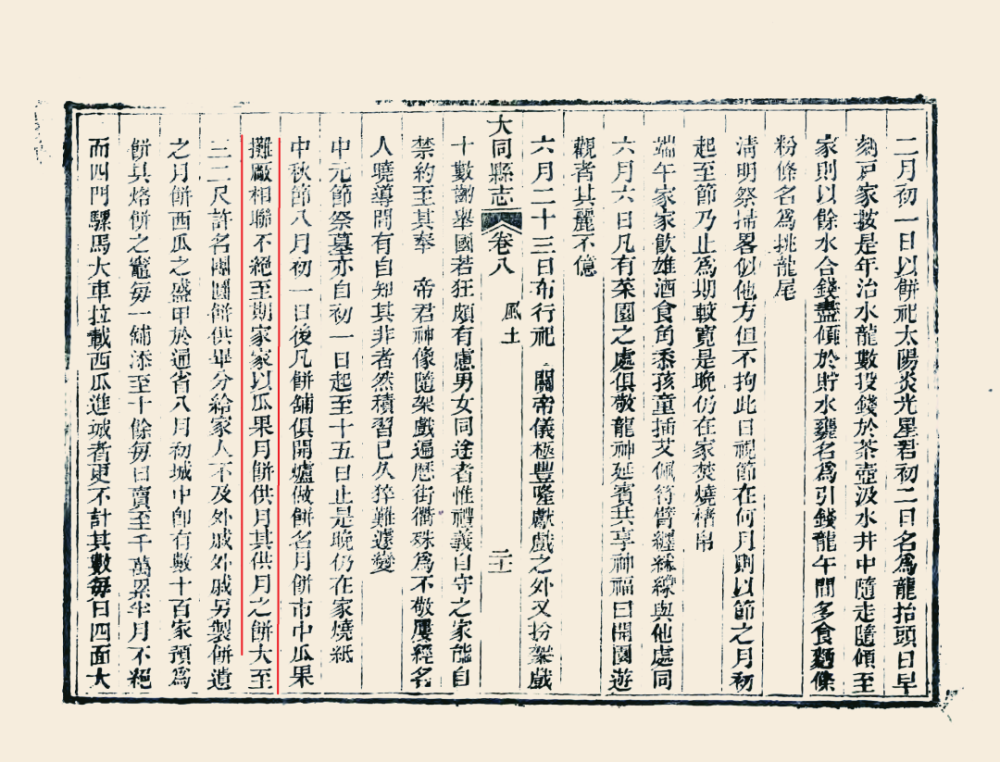 二月初一日以餅祀太陽炎光星君初二日名爲龍抬頭日早
刻戶家按是年治水龍數投錢於茶壺汲水井中隨走隨傾至
家則以餘水合錢盡傾於貯水甕名爲引錢龍午間多食麵條
粉條名爲挑龍尾
淸明祭掃畧似他方但不拘此日視節在何月則以節之月初
起至節乃止爲期較寛是晚仍在家焚燒楮帛
端午家家飮雄酒食角黍孩童插艾佩符臂纒綵線與他處同
六月六日凡有菜園之處俱敬龍神延賓共享神福曰開園遊
觀者其麗不億
大同縣志 卷八 風土 二十
六月二十三日布行祀 關帝儀極豐隆獻戲之外又扮架戲
十數齣舉國若狂頗有慮男女同途者惟禮義自守之家能自
禁約至其奉 帝君神像隨架戲遍歷街衢殊爲不敬屢經名
人曉導間有自知其非者然積習已久猝難遽變
中元節祭墓亦自初一日起至十五日止是晚仍在家燒紙
中秋節八月初一日後凡餅舖俱開爐做餅名月餅市中瓜果
攤厰相聯不絕至期家家以瓜果月餅供月其供月之餅大至
三二尺許名團圓餅供畢分給家人不及外戚外戚另製餅遺
之月餅西瓜之盛甲於通省八月初城中卽有數十百家預爲
餅其烙餅之竈每一舖添至十餘每日賣至千萬累半月不絕
而四門騾馬大車拉載西瓜進城者更不計其數每日四面大